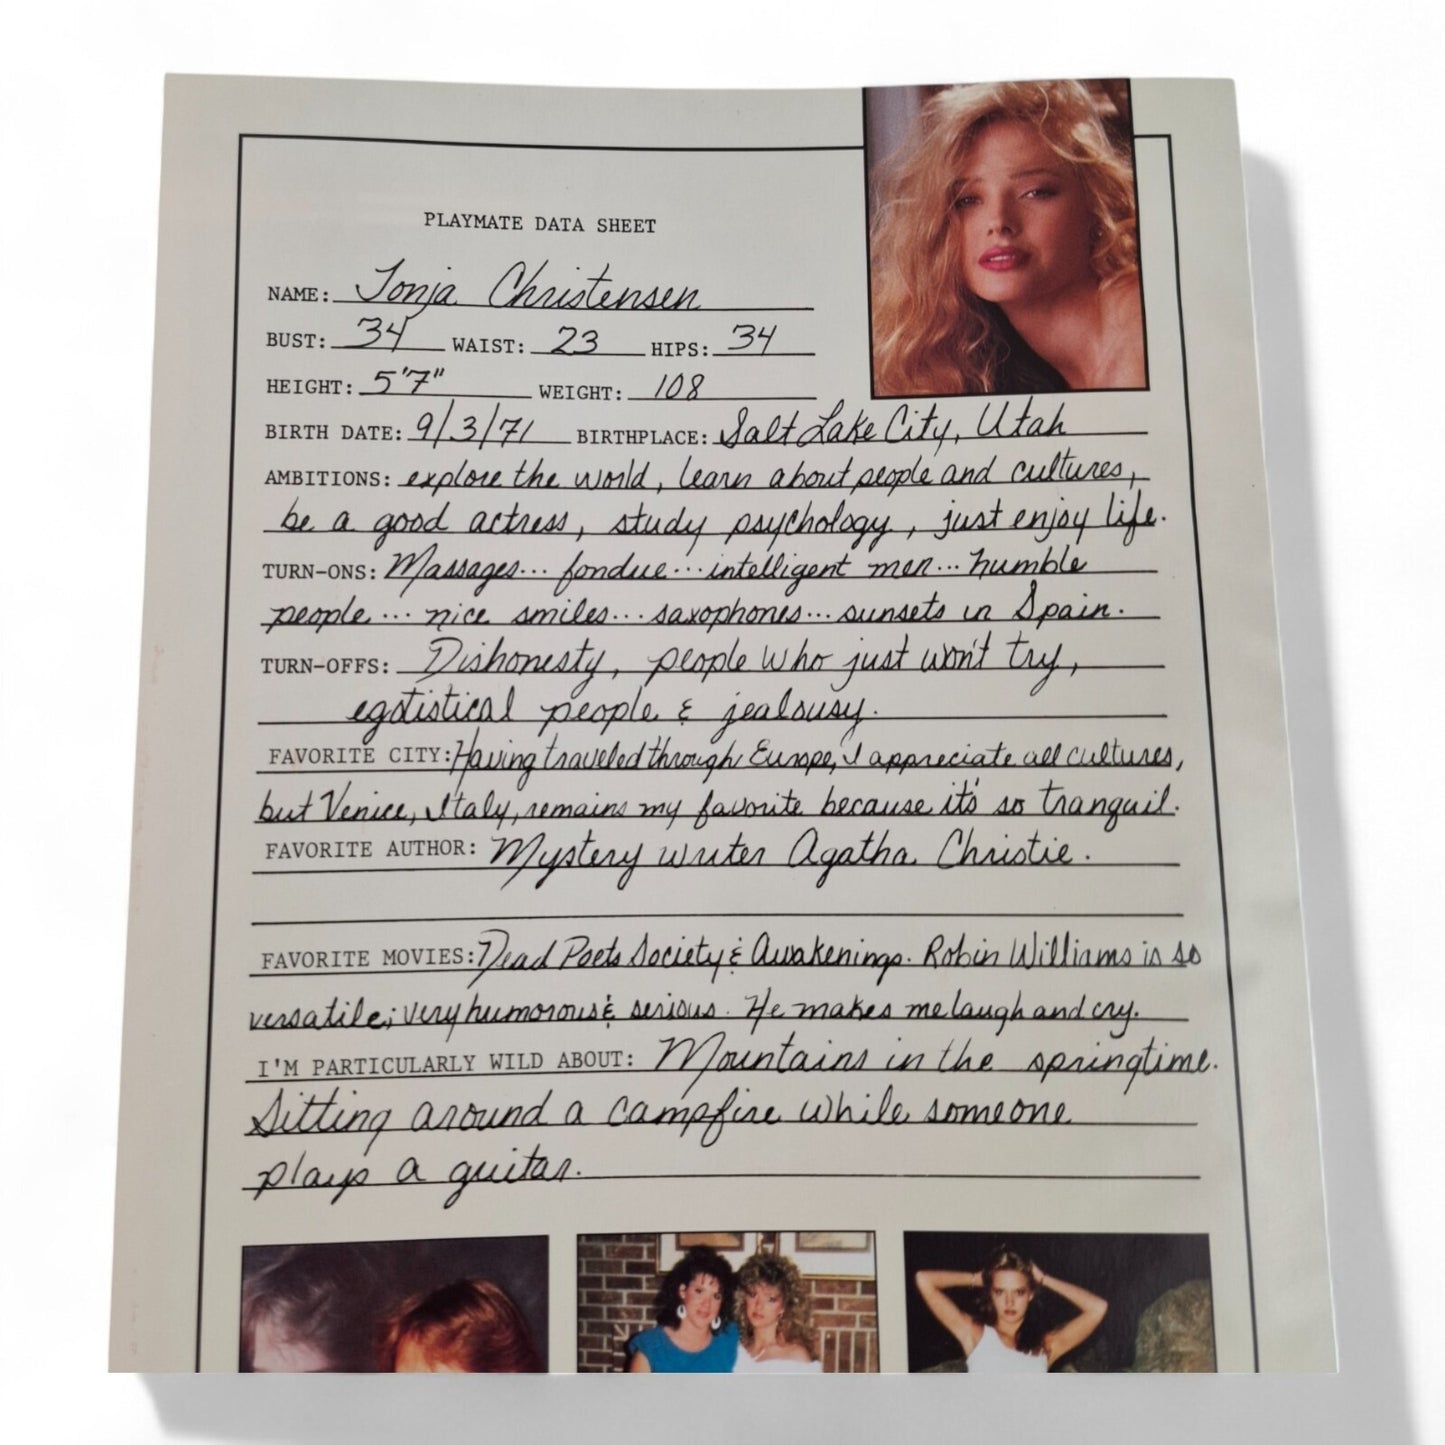 PLAYMATE DATA SHEET
NAME: Tonja Christensen
BUST: 34 WAIST: 23 HIPS: 34
HEIGHT: 5'7" WEIGHT: 108
BIRTH DATE: 9/3/71 BIRTHPLACE: Salt Lake City, Utah
AMBITIONS: explore the world, learn about people and cultures,
be a good actress, study psychology, just enjoy life.
TURN-ONS: Massages... fondue... intelligent men... humble
people... nice smiles... saxophones... sunsets in Spain.
TURN-OFFS: Dishonesty, people who just won't try,
egotistical people & jealousy.
FAVORITE CITY: Having traveled through Europe, I appreciate all cultures,
but Venice, Italy, remains my favorite because it's so tranquil.
FAVORITE AUTHOR: Mystery writer Agatha Christie.
FAVORITE MOVIES: Dead Poets Society & Awakenings. Robin Williams is so
versatile; very humorous & serious. He makes me laugh and cry.
I'M PARTICULARLY WILD ABOUT: Mountains in the springtime.
Sitting around a campfire while someone
plays a guitar.